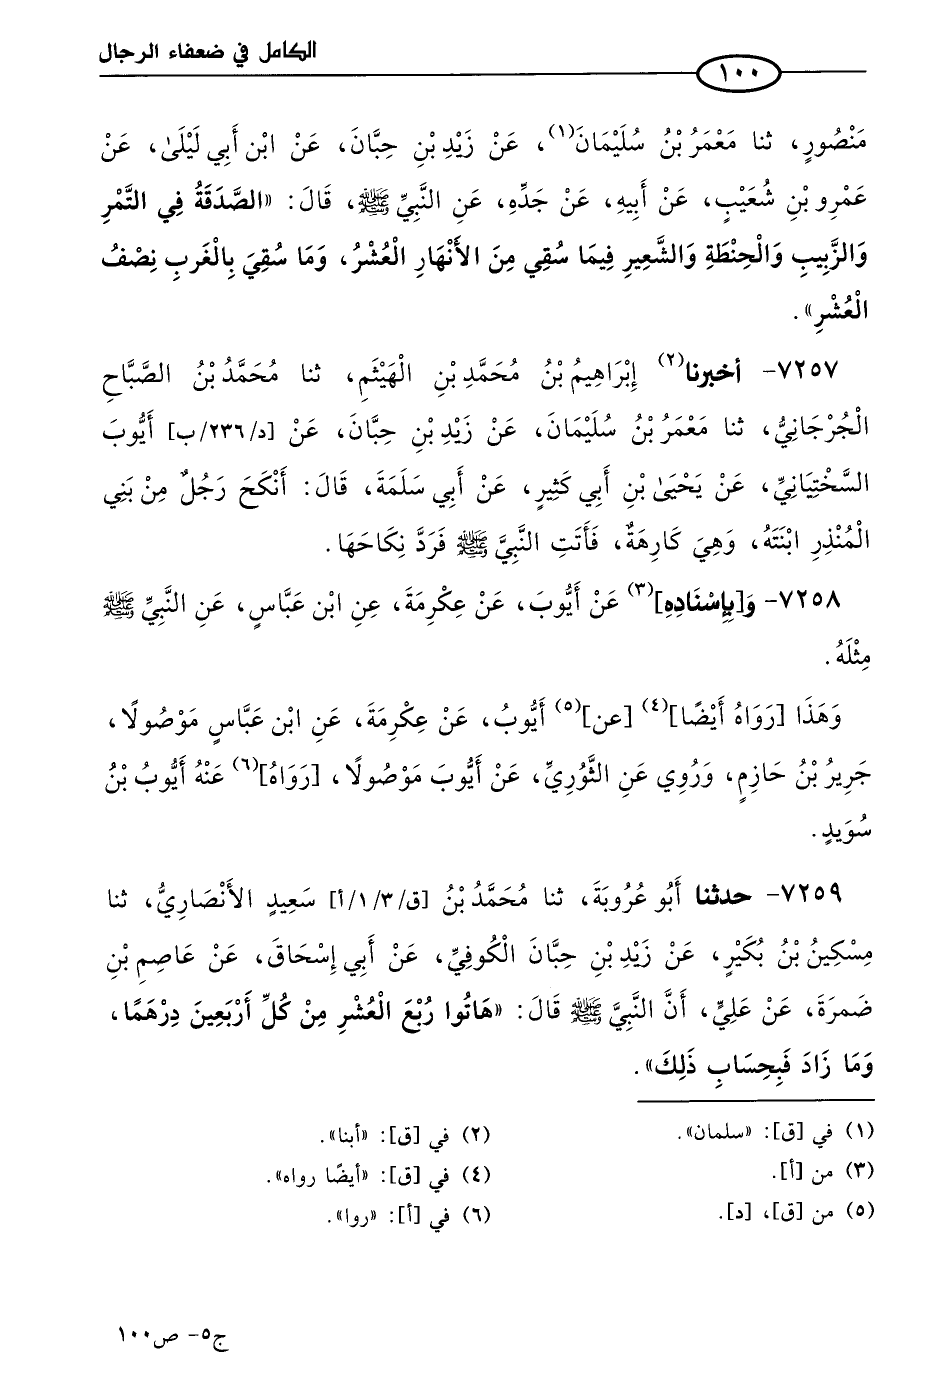 الكامل في ضعفاء الرجال
١٠٠
مَنْصُورٍ، ثنا مَعْمَرُ بْنُ سُلَيْمَانَ(١)، عَنْ زَيْدِ بْنِ حِبَّانَ، عَنْ ابْنِ أَبِي لَيْلَىٰ، عَنْ
عَمْرِو بْنِ شُعَيْبٍ، عَنْ أَبِيهِ، عَنْ جَدِّهِ، عَنِ النَّبِيِّ ﷺ، قَالَ: «الصَّدَقَةُ فِي التَّمْرِ
وَالزَّبِيبِ وَالْحِنْطَةِ وَالشَّعِيرِ فِيمَا سُقِي مِنَ الأَنْهَارِ الْعُشْرُ، وَمَا سُقِيَ بِالْغَربِ نِصْفُ
الْعُشْرِ».
٧٢٥٧- أخبرنا(٢) إِبْرَاهِيمُ بْنُ مُحَمَّدِ بْنِ الْهَيْثَمِ، ثنا مُحَمَّدُ بْنُ الصَّبَّاحِ
الْجُرْجَانِيُّ، ثنا مَعْمَرُ بْنُ سُلَيْمَانَ، عَنْ زَيْدِ بْنِ حِبَّانَ، عَنْ [د/٢٣٦/ب] أَيُّوبَ
السَّخْتِيَانِيِّ، عَنْ يَحْيَىٰ بْنِ أَبِي كَثِيرٍ، عَنْ أَبِي سَلَمَةَ، قَالَ: أَنْكَحَ رَجُلٌ مِنْ بَنِي
الْمُنْذِرِ ابْنَتَهُ، وَهِيَ كَارِهَةٌ، فَأَتَتِ النَّبِيَّ ﷺ فَرَدَّ نِكَاحَهَا.
٧٢٥٨- وَ[بِإِسْنَادِهِ](٣) عَنْ أَيُّوبَ، عَنْ عِكْرِمَةَ، عِنِ ابْن عَبَّاسٍ، عَنِ النَّبِيِّ ﷺ
مِثْلَهُ.
وَهَذَا [رَوَاهُ أَيْضًا](٤) [عن](٥) أَيُّوبُ، عَنْ عِكْرِمَةَ، عَنِ ابْن عَبَّاسٍ مَوْصُولًا،
جَرِيرُ بْنُ حَازِمٍ، وَرُوِي عَنِ الثَّوْرِيِّ، عَنْ أَيُّوبَ مَوْصُولًا، [رَوَاهُ](٦) عَنْهُ أَيُّوبُ بْنُ
سُوَيدٍ.
٧٢٥٩- حدثنا أَبُو عُرُوبَةَ، ثنا مُحَمَّدُ بْنُ [ق/٣/١/أ] سَعِيدٍ الأَنْصَارِيُّ، ثنا
مِسْكِينُ بْنُ بُكَيْرٍ، عَنْ زَيْدِ بْنِ حِبَّانَ الْكُوفِيِّ، عَنْ أَبِي إِسْحَاقَ، عَنْ عَاصِمِ بْنِ
ضَمرَةَ، عَنْ عَلِيِّ، أَنَّ النَّبِيَّ ﷺ قَالَ: «هَاتُوا رُبْعَ الْعُشْرِ مِنْ كُلِّ أَرْبَعِينَ دِرْهَمًا،
وَمَا زَادَ فَبِحِسَابِ ذَلِكَ».
(١) في [ق]: «سلمان».
(٢) في [ق]: «أبنا».
(٣) من [أ].
(٤) في [ق]: «أيضًا رواه».
(٥) من [ق]، [د].
(٦) في [أ]: «روا».
ج٥- ص١٠٠